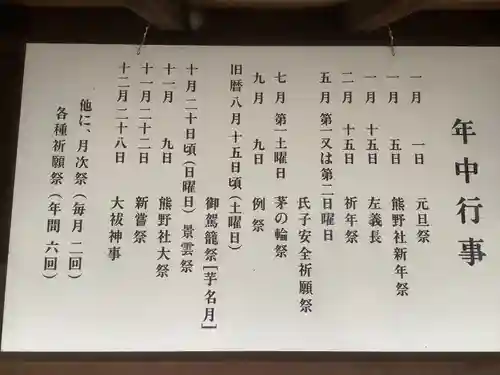 年中行事
一月 一日 元旦祭
一月 五日 熊野社新年祭
一月 十五日 左義長
二月 十五日 祈年祭
五月 第一又は第二日曜日
氏子安全祈願祭
七月 第一土曜日 茅の輪祭
九月 九日 例祭
旧暦八月十五日頃(土曜日)
御駕籠祭[芋名月]
十月 二十日頃(日曜日) 景雲祭
十一月 九日 熊野社大祭
十一月二十二日 新嘗祭
十二月二十八日 大祓神事
他に、月次祭(毎月 二回)
各種祈願祭(年間 六回)